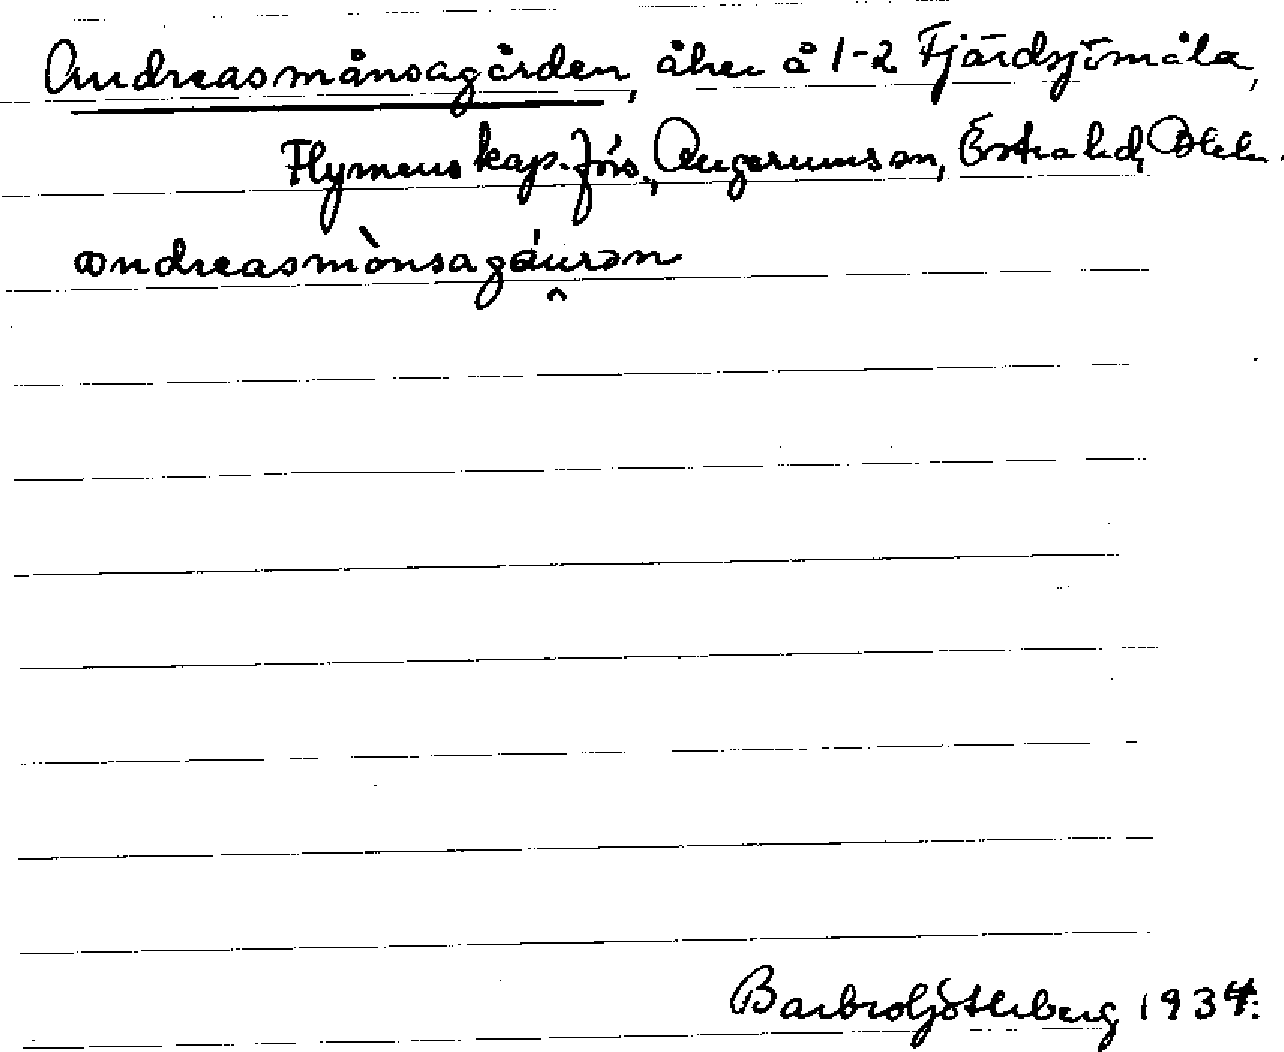 Andreasmånsagården, åker å 1-2 Fjärdsjömåla,
Flymens kap. förs., Augerums sn, Östra hd, Blek.
andreasmònsagáurən
Barbro Götlerberg 1934.